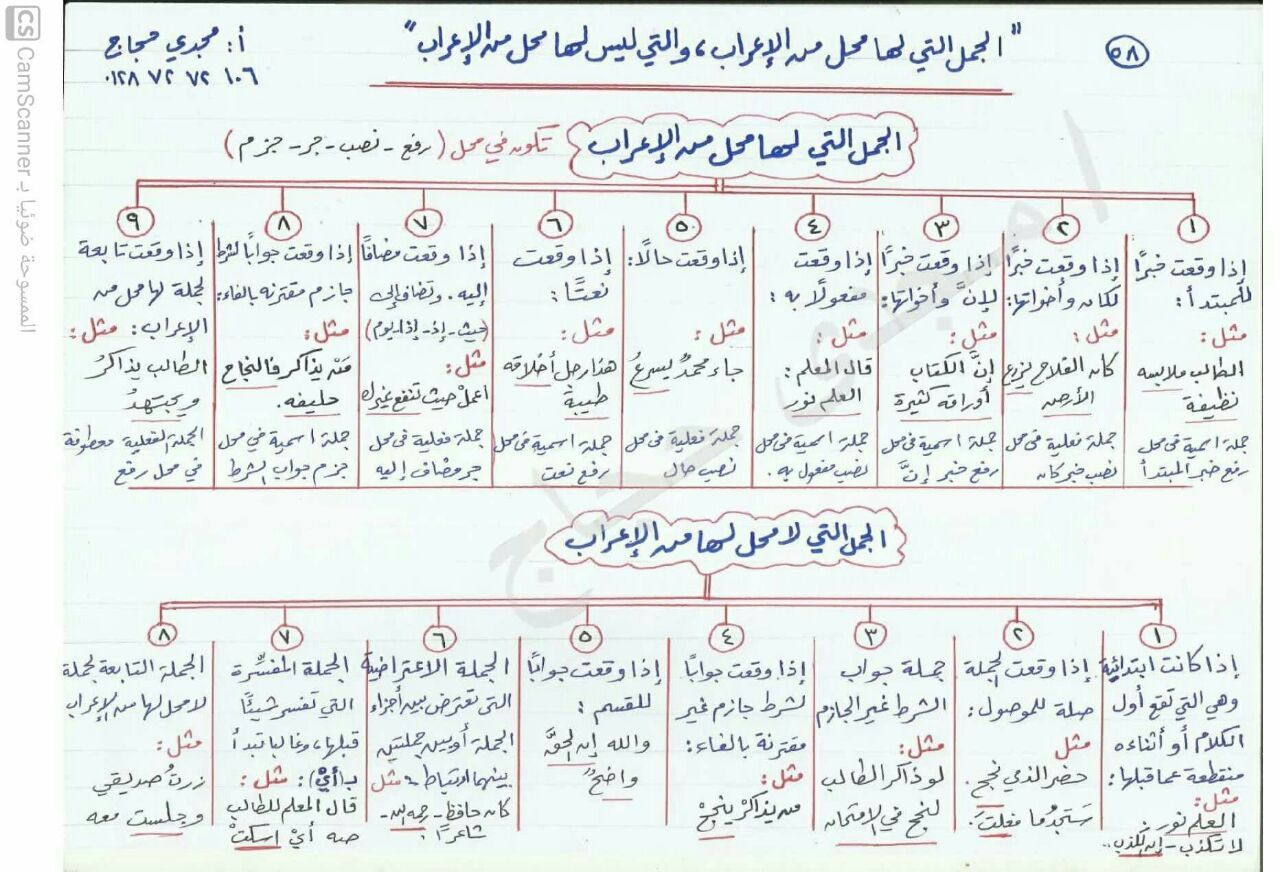 ٥٨
"الجمل التي لها محل من الإعراب، والتي ليس لها محل من الإعراب"
أ: مجدي حجاج
٠١٢٨ ٧٢ ٧٢ ١٠٦
الجمل التي لها محل من الإعراب
تكون في محل (رفع - نصب - جر - جزم)
١
إذا وقعت خبرًا
للمبتدأ:
مثل:
الطالب ملابسه
نظيفة
جملة اسمية في محل
رفع خبر المبتدأ
٢
إذا وقعت خبرًا
لكان وأخواتها:
مثل:
كان الفلاح يزرع
الأرض
جملة فعلية في محل
نصب خبر كان
٣
إذا وقعت خبرًا
لإنَّ وأخواتها:
مثل:
إنَّ الكتاب
أوراقه كثيرة
جملة اسمية في محل
رفع خبر إنَّ
٤
إذا وقعت
مفعولًا به:
مثل:
قال المعلم:
العلم نور
جملة اسمية في محل
نصب مفعول به.
٥
إذا وقعت حالًا:
مثل:
جاء محمدٌ يسرعُ
جملة فعلية في محل
نصب حال
٦
إذا وقعت
نعتًا:
مثل:
هذا رجل أخلاقه
طيبة
جملة اسمية في محل
رفع نعت
٧
إذا وقعت مضافًا
إليه. وتضاف إلى
(حيث - إذ - إذا - يوم)
مثل:
اعمل حيث تنفع غيرك
جملة فعلية في محل
جر مضاف إليه
٨
إذا وقعت جوابًا لشرط
جازم مقترنة بالفاء:
مثل:
مَنْ يذاكر فالنجاح
حليفه.
جملة اسمية في محل
جزم جواب الشرط
٩
إذا وقعت تابعة
لجملة لها محل من
الإعراب: مثل:
الطالب يذاكرُ
ويجتهدُ
الجملة الفعلية معطوفة
في محل رفع
الجمل التي لا محل لها من الإعراب
١
إذا كانت ابتدائية
وهي التي تقع أول
الكلام أو أثناءه
منقطعة عما قبلها:
مثل:
العلم نور.
لا تكذب - إن الكذب..
٢
إذا وقعت الجملة
صلة للموصول:
مثل
حضر الذي نجح.
ستجد ما فعلتَ.
٣
جملة جواب
الشرط غير الجازم
مثل:
لو ذاكر الطالب
لنجح في الامتحان
٤
إذا وقعت جوابًا
لشرط جازم غير
مقترنة بالفاء:
مثل:
من يذاكرْ ينجحْ
٥
إذا وقعت جوابًا
للقسم:
والله إن الحقَّ
واضحٌ
٦
الجملة الاعتراضية
التي تعترض بين أجزاء
الجملة أو بين جملتين
بينهما ارتباط: مثل
كان حافظ - رحمه الله -
شاعرًا.
٧
الجملة المفسِّرة
التي تفسر شيئًا
قبلها، وغالبا تبدأ
بـ(أيْ): مثل:
قال المعلم للطالب
صه أيْ اسكتْ
٨
الجملة التابعة لجملة
لا محل لها من الإعراب
مثل:
زرتُ صديقي
وجلست معه
CS CamScanner الممسوحة ضوئيا بـ